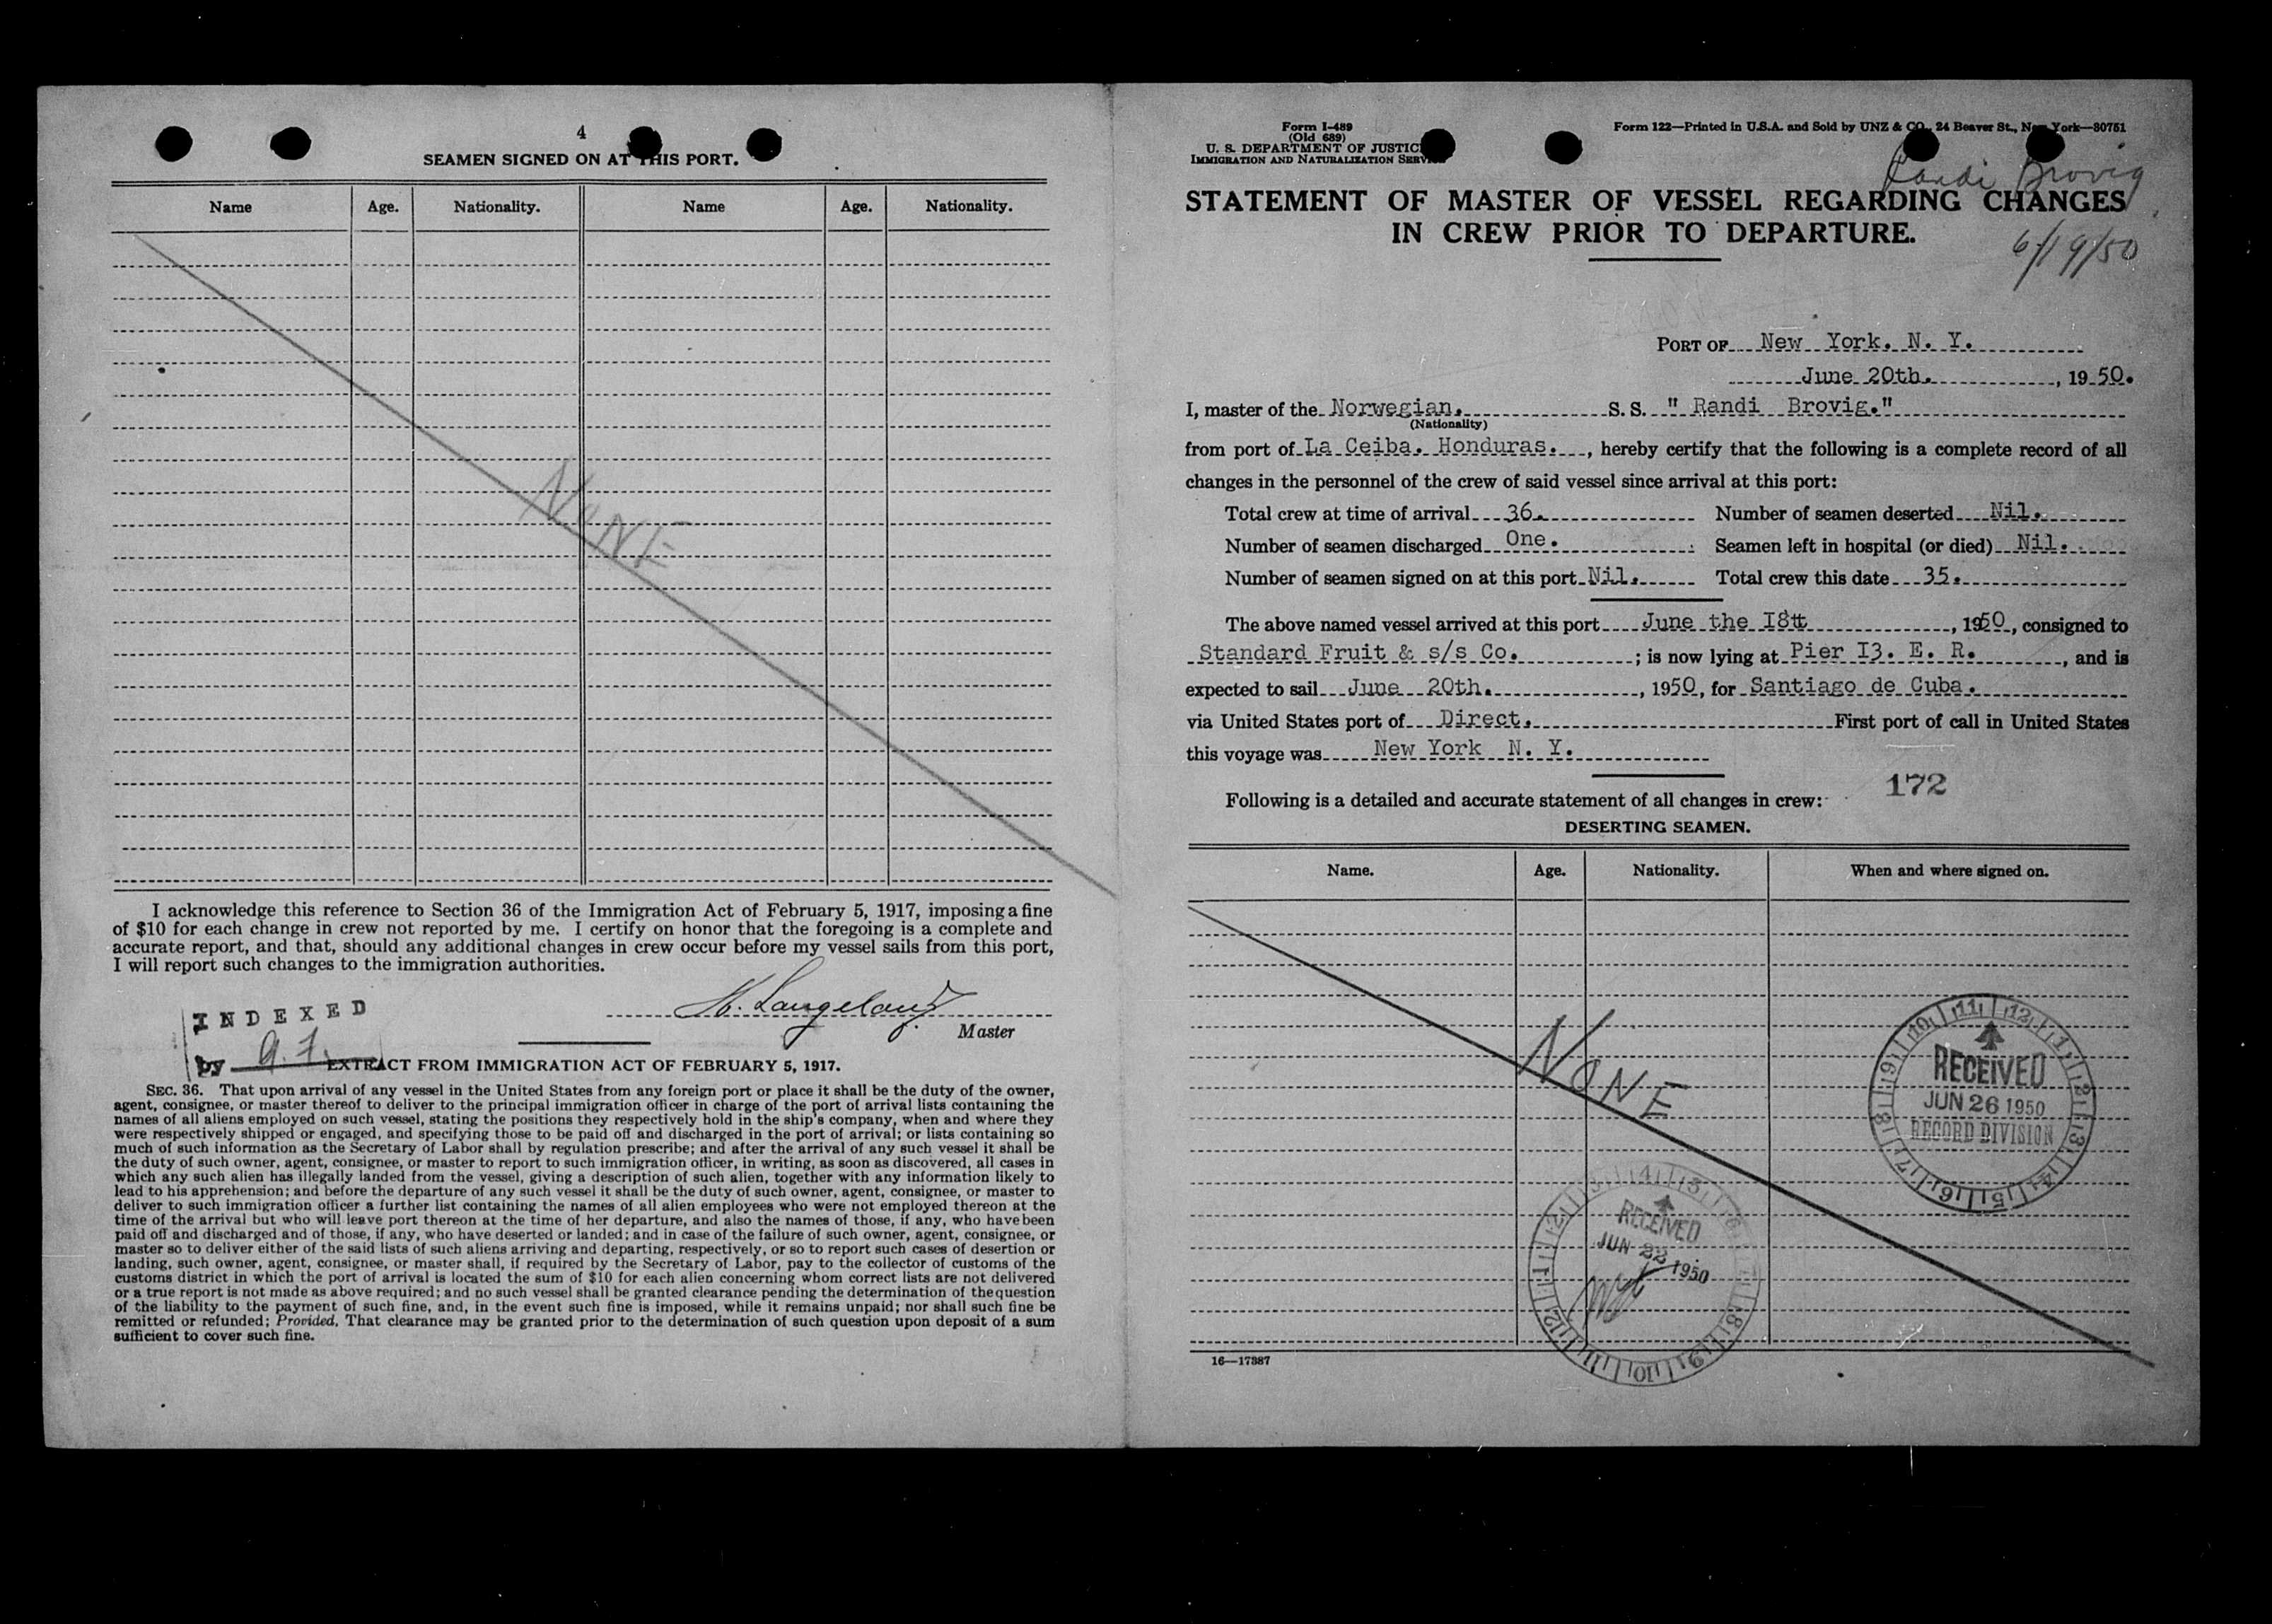 4
SEAMEN SIGNED ON AT THIS PORT.
Name Age. Nationality. Name Age. Nationality.
NONE
I acknowledge this reference to Section 36 of the Immigration Act of February 5, 1917, imposing a fine
of $10 for each change in crew not reported by me. I certify on honor that the foregoing is a complete and
accurate report, and that, should any additional changes in crew occur before my vessel sails from this port,
I will report such changes to the immigration authorities.
INDEXED
by
Master
EXTRACT FROM IMMIGRATION ACT OF FEBRUARY 5, 1917.
SEC. 36. That upon arrival of any vessel in the United States from any foreign port or place it shall be the duty of the owner,
agent, consignee, or master thereof to deliver to the principal immigration officer in charge of the port of arrival lists containing the
names of all aliens employed on such vessel, stating the positions they respectively hold in the ship's company, when and where they
were respectively shipped or engaged, and specifying those to be paid off and discharged in the port of arrival; or lists containing so
much of such information as the Secretary of Labor shall by regulation prescribe; and after the arrival of any such vessel it shall be
the duty of such owner, agent, consignee, or master to report to such immigration officer, in writing, as soon as discovered, all cases in
which any such alien has illegally landed from the vessel, giving a description of such alien, together with any information likely to
lead to his apprehension; and before the departure of any such vessel it shall be the duty of such owner, agent, consignee, or master to
deliver to such immigration officer a further list containing the names of all alien employees who were not employed thereon at the
time of the arrival but who will leave port thereon at the time of her departure, and also the names of those, if any, who have been
paid off and discharged and of those, if any, who have deserted or landed; and in case of the failure of such owner, agent, consignee, or
master so to deliver either of the said lists of such aliens arriving and departing, respectively, or so to report such cases of desertion or
landing, such owner, agent, consignee, or master shall, if required by the Secretary of Labor, pay to the collector of customs of the
customs district in which the port of arrival is located the sum of $10 for each alien concerning whom correct lists are not delivered
or a true report is not made as above required; and no such vessel shall be granted clearance pending the determination of the question
of the liability to the payment of such fine, and, in the event such fine is imposed, while it remains unpaid; nor shall such fine be
remitted or refunded; Provided, That clearance may be granted prior to the determination of such question upon deposit of a sum
sufficient to cover such fine.
Form I-489
(Old 689)
U. S. DEPARTMENT OF JUSTICE
IMMIGRATION AND NATURALIZATION SERVICE
Form 122—Printed in U.S.A. and Sold by UNZ & CO., 24 Beaver St., New York—80751
Randi Brovig
STATEMENT OF MASTER OF VESSEL REGARDING CHANGES
IN CREW PRIOR TO DEPARTURE.
6/19/50
PORT OF New York. N. Y.
June 20th. , 1950.
I, master of the Norwegian. S. S. " Randi Brovig."
(Nationality)
from port of La Ceiba. Honduras. , hereby certify that the following is a complete record of all
changes in the personnel of the crew of said vessel since arrival at this port:
Total crew at time of arrival 36. Number of seamen deserted Nil.
Number of seamen discharged One. Seamen left in hospital (or died) Nil.
Number of seamen signed on at this port Nil. Total crew this date 35.
The above named vessel arrived at this port June the I8tt , 1950, consigned to
Standard Fruit & s/s Co. ; is now lying at Pier I3. E. R. , and is
expected to sail June 20th. , 1950, for Santiago de Cuba.
via United States port of Direct. First port of call in United States
this voyage was New York N. Y.
172
Following is a detailed and accurate statement of all changes in crew:
DESERTING SEAMEN.
Name. Age. Nationality. When and where signed on.
NONE
RECEIVED
JUN 26 1950
RECORD DIVISION
RECEIVED
JUN 22 1950
16—17387